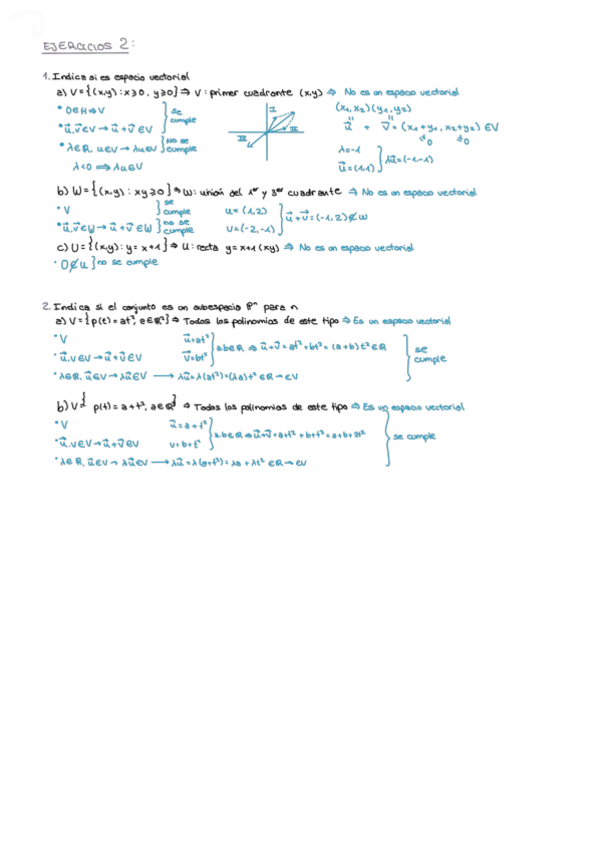 EJERCICIOS 2:
1. Indica si es espacio vectorial
a) V = {(x,y) : x≥0, y≥0} ⇒ V : primer cuadrante (x,y) ⇒ No es un espacio vectorial
* 0∈H⇒V
* u⃗,v⃗∈V → u⃗+v⃗∈V } se cumple
* λ∈R, u∈V → λu∈V } No se cumple
λ<0 ⟹ λu∈V
I
II
III
(x1,x2)(y1,y2)
u⃗ + v⃗ = (x1+y1, x2+y2) ∈V
≥0 ≥0
λ=-1
u⃗=(1,1) } λu⃗=(-1,-1)
b) W = {(x,y) : xy≥0} ⇒ W: unión del 1er y 3er cuadrante ⇒ No es un espacio vectorial
* V } se cumple
* u⃗,v⃗∈W → u⃗+v⃗∈W } no se cumple
u=(1,2)
v=(-2,-1) } u⃗+v⃗=(-1,2)∉W
c) U={(x,y): y=x+1} ⇒ U: recta y=x+1 (xy) ⇒ No es un espacio vectorial
· 0∉U } no se cumple
2. Indica si el conjunto es un subespacio Pⁿ para n
a) V={p(t)=at², a∈R²} ⇒ Todos los polinomios de este tipo ⇒ Es un espacio vectorial
* V
u⃗=at²
* u⃗,v∈V → u⃗+v⃗∈V
v⃗=bt² } a,b∈R ⇒ u⃗+v⃗=at²+bt²=(a+b)t²∈R
* λ∈R, u⃗∈V → λu⃗∈V ⟶ λu⃗=λ(at²)=(λa)t²∈R → ∈V
se cumple
b) V={p(t)=a+t², a∈R} ⇒ Todos los polinomios de este tipo ⇒ Es un espacio vectorial
* V
u⃗=a+t²
* u⃗,v∈V → u⃗+v⃗∈V
v=b+t² } a,b∈R ⇒ u⃗+v⃗=a+t²+b+t²=a+b+2t²
* λ∈R, u⃗∈V → λu⃗∈V ⟶ λu⃗=λ(a+t²)=λa+λt²∈R → ∈V
se cumple